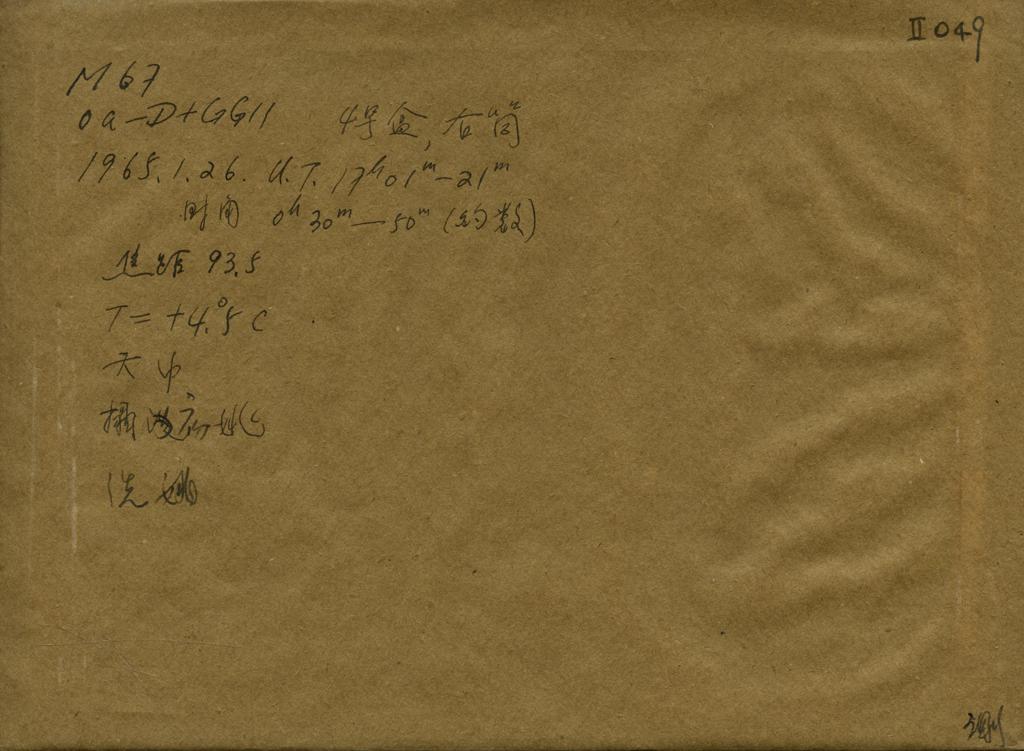 II 049
M 67
Oa-D+GG11 4号盒, 右筒
1965.1.26. U.T. 17h01m-21m
时角 0h30m—50m (约数)
焦距 93.5
T = +4.°5 C
天中
摄 姚
洗 姚